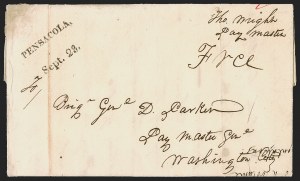 PENSACOLA,
Sept. 23,
Tho. Wright
Pay Master
Free
Brigr Genl D. Parker
Pay Master Genl
Washington City